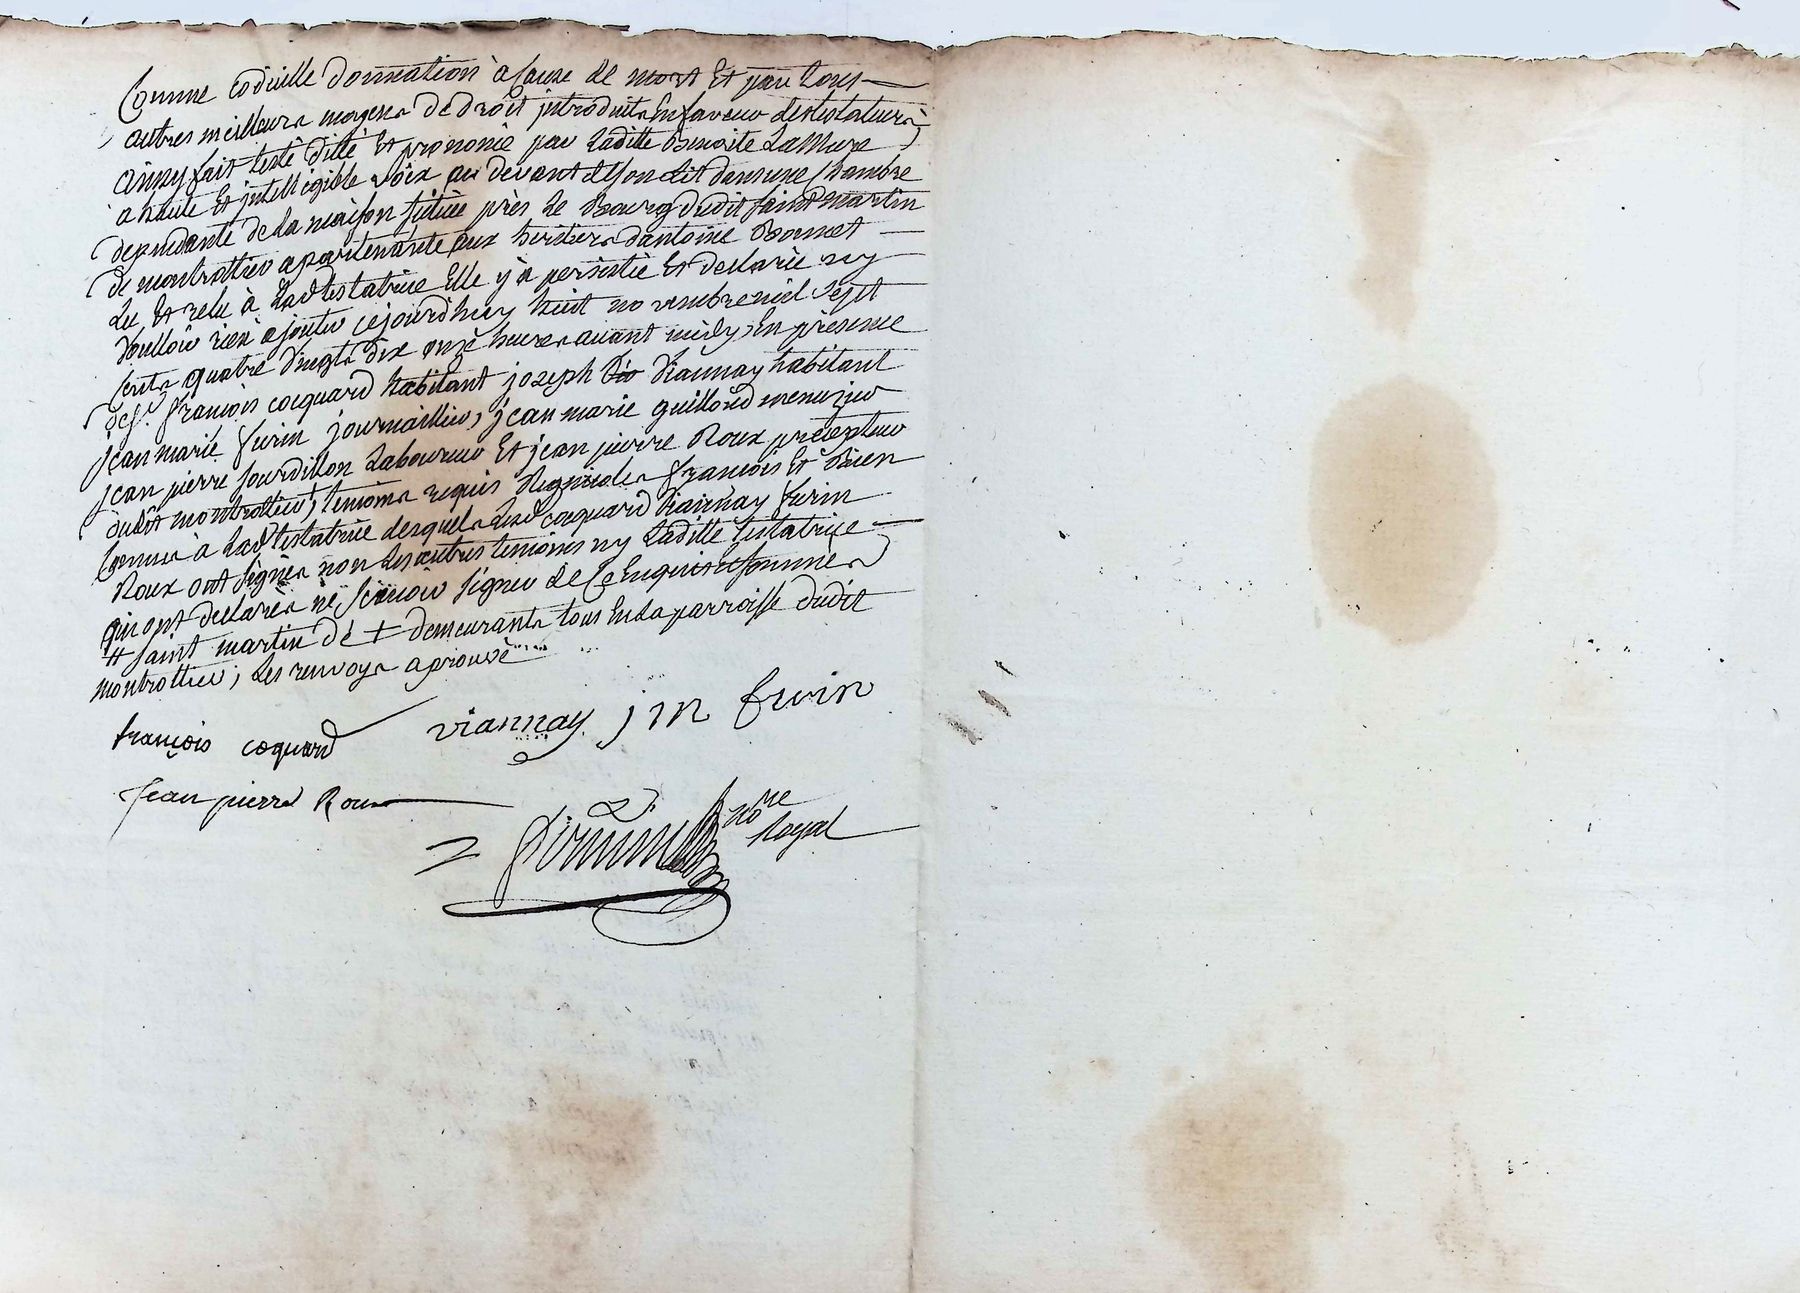 Comme codicille donnation à Cause de mort Et par tous
autres meilleurs moyens de droit introduits En faveur des testateurs
ainsy fait testé ditté Et prononcé par Laditte Benoite LaMure
a haute Et intelligible Voix au devant de son Lit dans une Chambre
dependante de la maison sittuée près Le Bourg dudit saint martin
de montrottier apartenante aux heritiers dantoine Bonnet
Lu Et relu à Lad testatrice Elle y a persistée Et declarée ny
Voulloir rien ajouter cejourdhuy huit novembre mil sept
Cents quatre Vingts dix onze heures avant midy, En présence
de sr. françois coquard habitant joseph Viannay habitant
jean marie furin journaillier, jean marie guilloud menuzier
jean pierre jourdillon Laboureur Et jean pierre Roux precepteur
dudit montrottier, temoins requis Regnicoles françois Et Bien
Connus à Lad testatrice desquels Lesd coquard Viannay furin
Roux ont signés non Les autres temoins ny Laditte testatrice
qui ont declarés ne sçavoir signer de Ce Enquis Et sommés
# saint martin de + demeurants tous En La parroisse dudit
montrottier, Les renvoys aprouvé
françois coquard viannay j m furin
Jean pierre Roux
no re
Royal